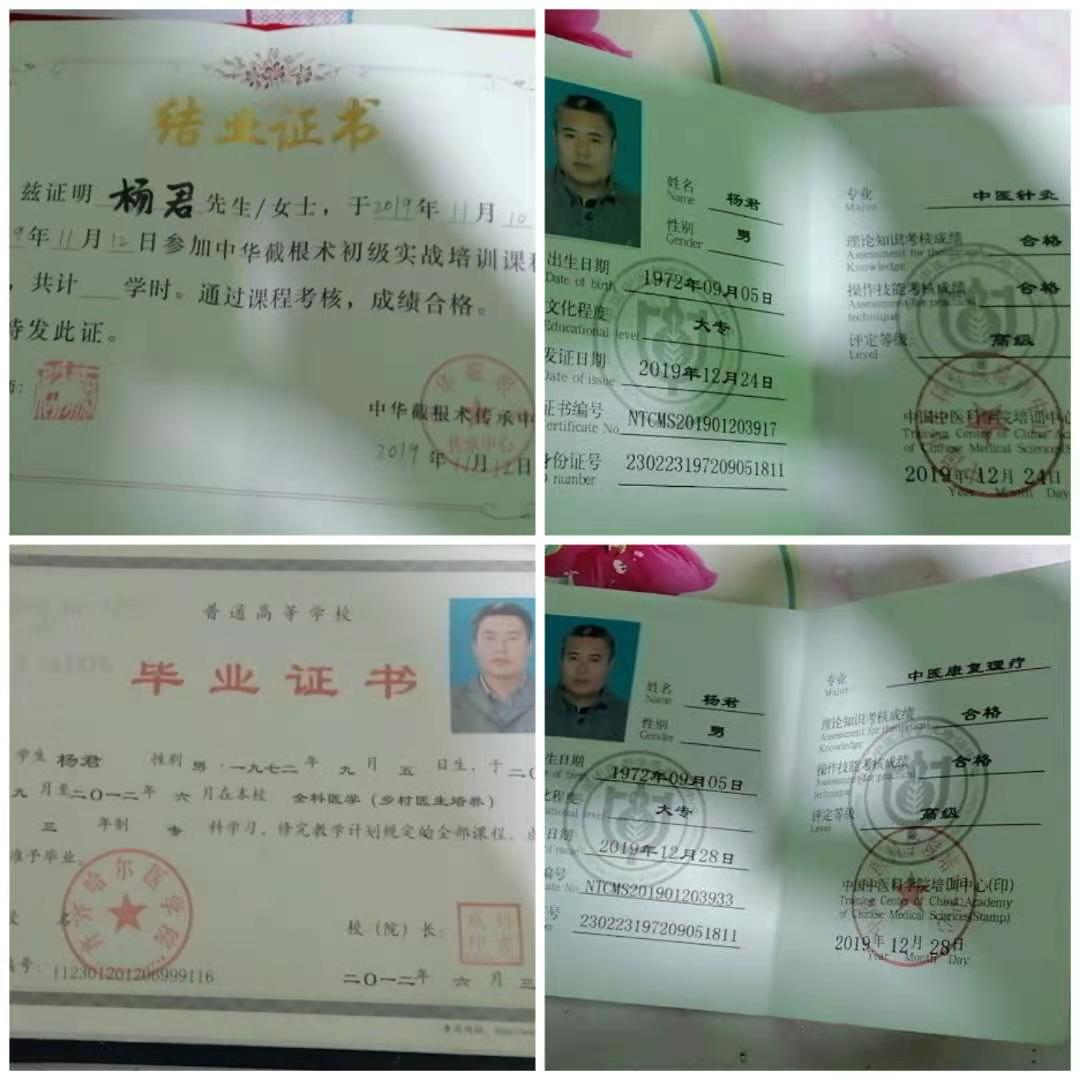 结业证书
兹证明 杨君 先生/女士，于2019年11月10
9年11月12日参加中华截根术初级实战培训课程
，共计___学时。通过课程考核，成绩合格。
特发此证。
师：
中华截根术传承中
2019年11月12日
姓名 杨君
Name
性别 男
Gender
出生日期 1972年09月05日
Date of birth
文化程度 大专
Educational level
发证日期 2019年12月24日
Date of issue
证书编号 NTCMS201901203917
Certificate No
身份证号 230223197209051811
D number
专业 中医针灸
Major
理论知识考核成绩 合格
Assessment for theoretical
Knowledge
操作技能考核成绩 合格
Assessment for practical
technique
评定等级 高级
Level
中国中医科学院培训中心
Training Center of China Aca
of Chinese Medical Sciences(S
2019年12月24日
Year Month Day
普通高等学校
毕业证书
学生 杨君 性别 男，一九七二年 九月 五日生，于二〇
九月至二〇一二年 六月在本校 全科医学（乡村医生培养）
三年制 专科学习，修完教学计划规定的全部课程，
准予毕业。
齐齐哈尔医学院
校 名
校（院）长：
编号：112301201206999116
二〇一二年 六月 三
姓名 杨君
Name
性别 男
Gender
生日期 1972年09月05日
of birth
化程度 大专
ational level
日期 2019年12月28日
of issue
编号 NTCMS201901203933
cate No
号 230223197209051811
ber
专业 中医康复理疗
Major
理论知识考核成绩 合格
Assessment for theoretical
Knowledge
操作技能考核成绩 合格
Assessment for practical
technique
评定等级 高级
Level
中国中医科学院培训中心(印)
Training Center of China Academy
of Chinese Medical Sciences(Stamp)
2019年12月28日
Year Month Day